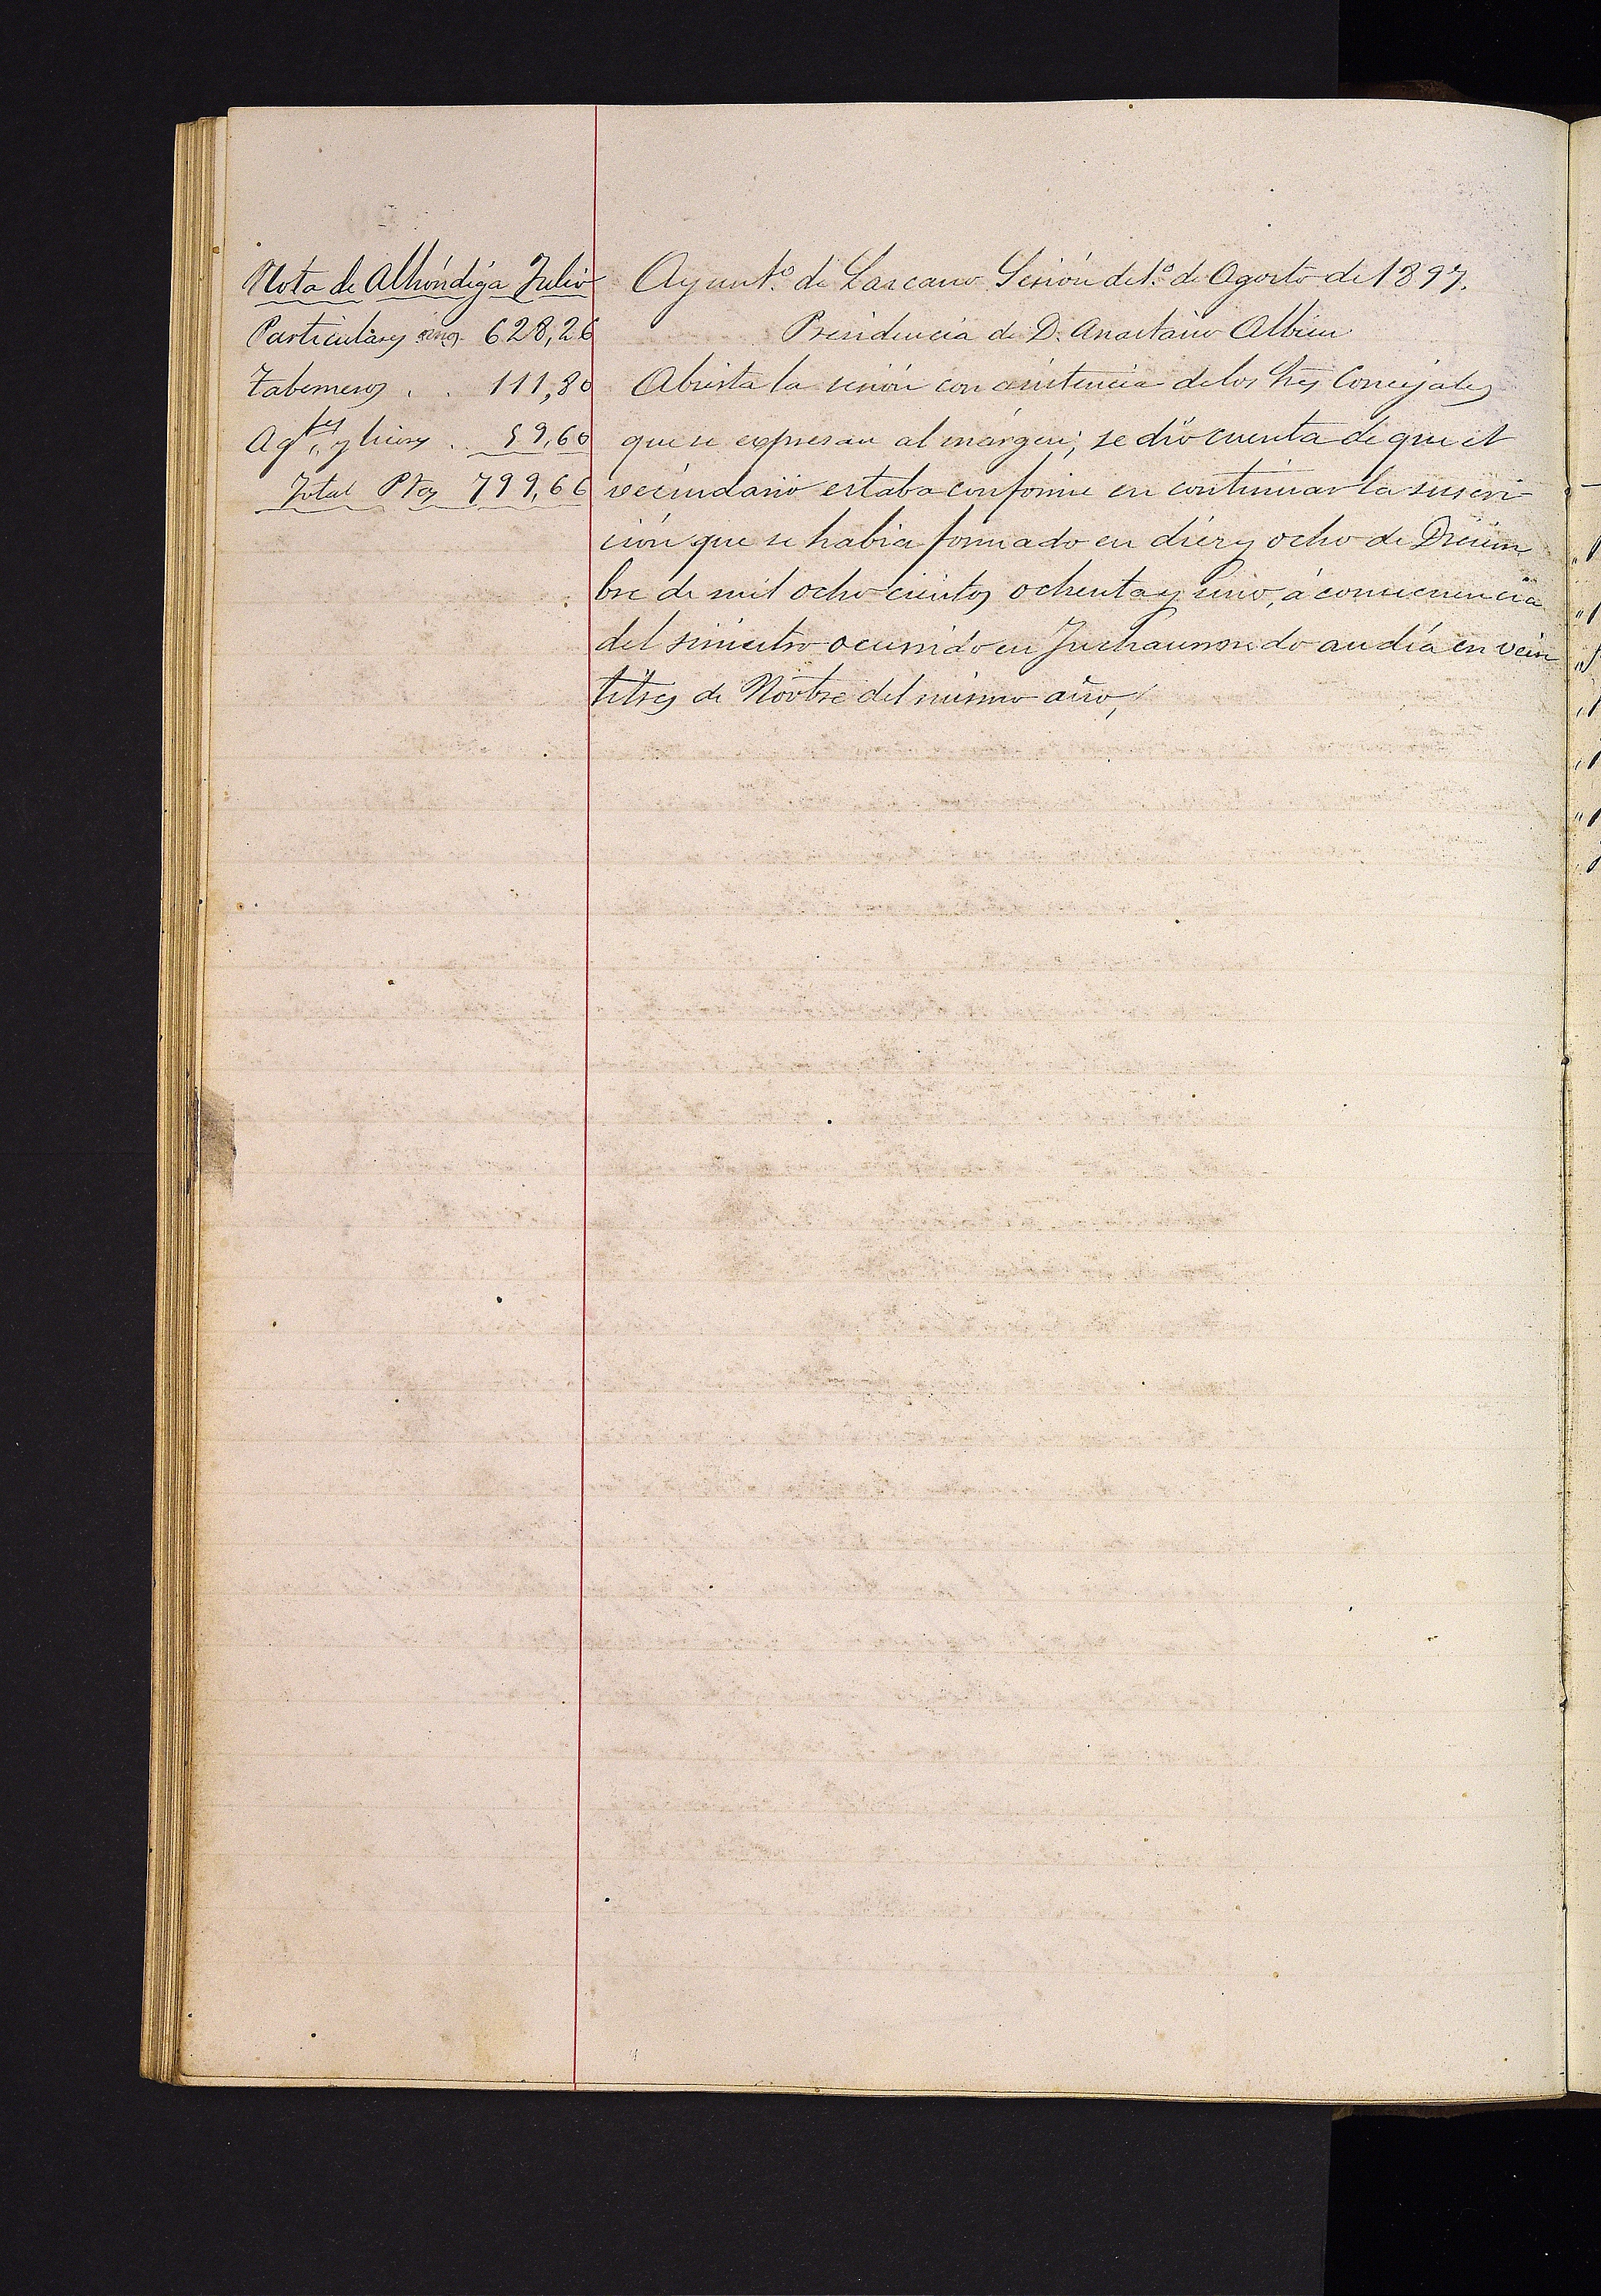 Nota de Alhóndiga Julio
Particulares 628,26
Taberneros . . 111,80
Agtes y licores . 59,60
Total Ptas 799,66
Ayunt.º de Lazcano Sesión del 1.º de Agosto de 1897.
Presidencia de D. Anastasio Albisu
Abierta la sesión con asistencia de los Sres Concejales
que se expresan al márgen; se dió cuenta de que el
vecindario estaba conforme en continuar la suscri-
ción que se habia formado en diez y ocho de Diciem
bre de mil ocho cientos ochenta y uno, á consecuencia
del siniestro ocurrido en andía en vein
titres de Novbre del mismo año,